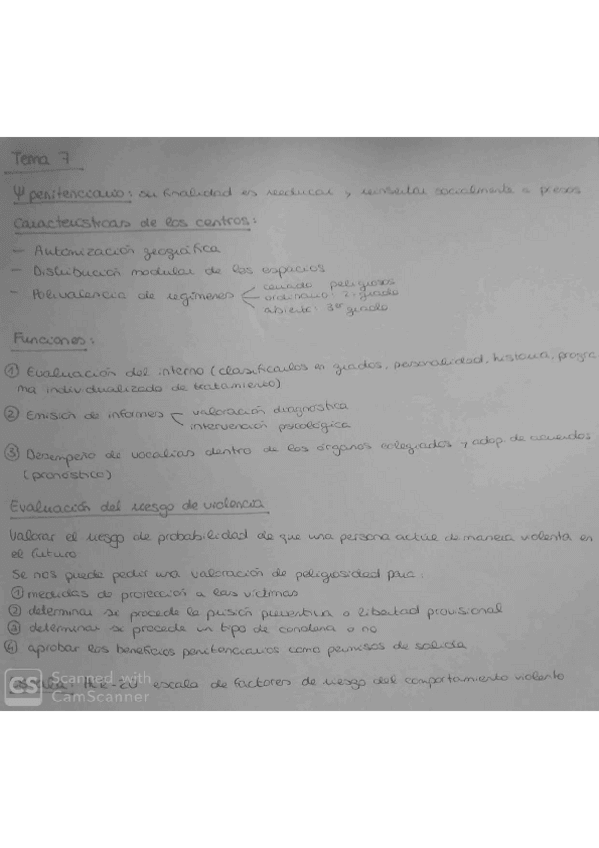 Tema 7
Ψ penitenciario: su finalidad es reeducar y reinsertar socialmente a presos
Características de los centros:
- Autonización geográfica
- Distribución modular de los espacios
- Polivalencia de regímenes
cerrado peligrosos
ordinario: 2º grado
abierto: 3er grado
Funciones:
① Evaluación del interno (clasificarlos en grados, personalidad, historia, progra
ma individualizado de tratamiento)
② Emisión de informes
valoración diagnostica
intervención psicológica
③ Desempeño de vocalías dentro de los órganos colegiados y adop. de acuerdos
(pronóstico)
Evaluación del riesgo de violencia
Valorar el riesgo de probabilidad de que una persona actúe de manera violenta en
el futuro
Se nos puede pedir una valoración de peligrosidad para:
① medidas de protección a las víctimas
② determinar si procede la prisión preventiva o libertad provisional
③ determinar si procede un tipo de condena o no
④ aprobar los beneficios penitenciarios como permisos de salida
escala de factores de riesgo del comportamiento violento
CS Scanned with
CamScanner